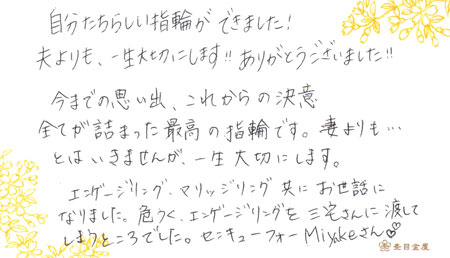 自分たちらしい指輪ができました!
夫よりも、一生大切にします!! ありがとうございました!!
今までの思い出、これからの決意
全てが詰まった最高の指輪です。妻よりも…
とはいきませんが、一生大切にします。
エンゲージリング、マリッジリング共にお世話に
なりました。危うく、エンゲージリングを三宅さんに渡して
しまうところでした。センキューフォーMiyakeさん♡♡
杢目金屋